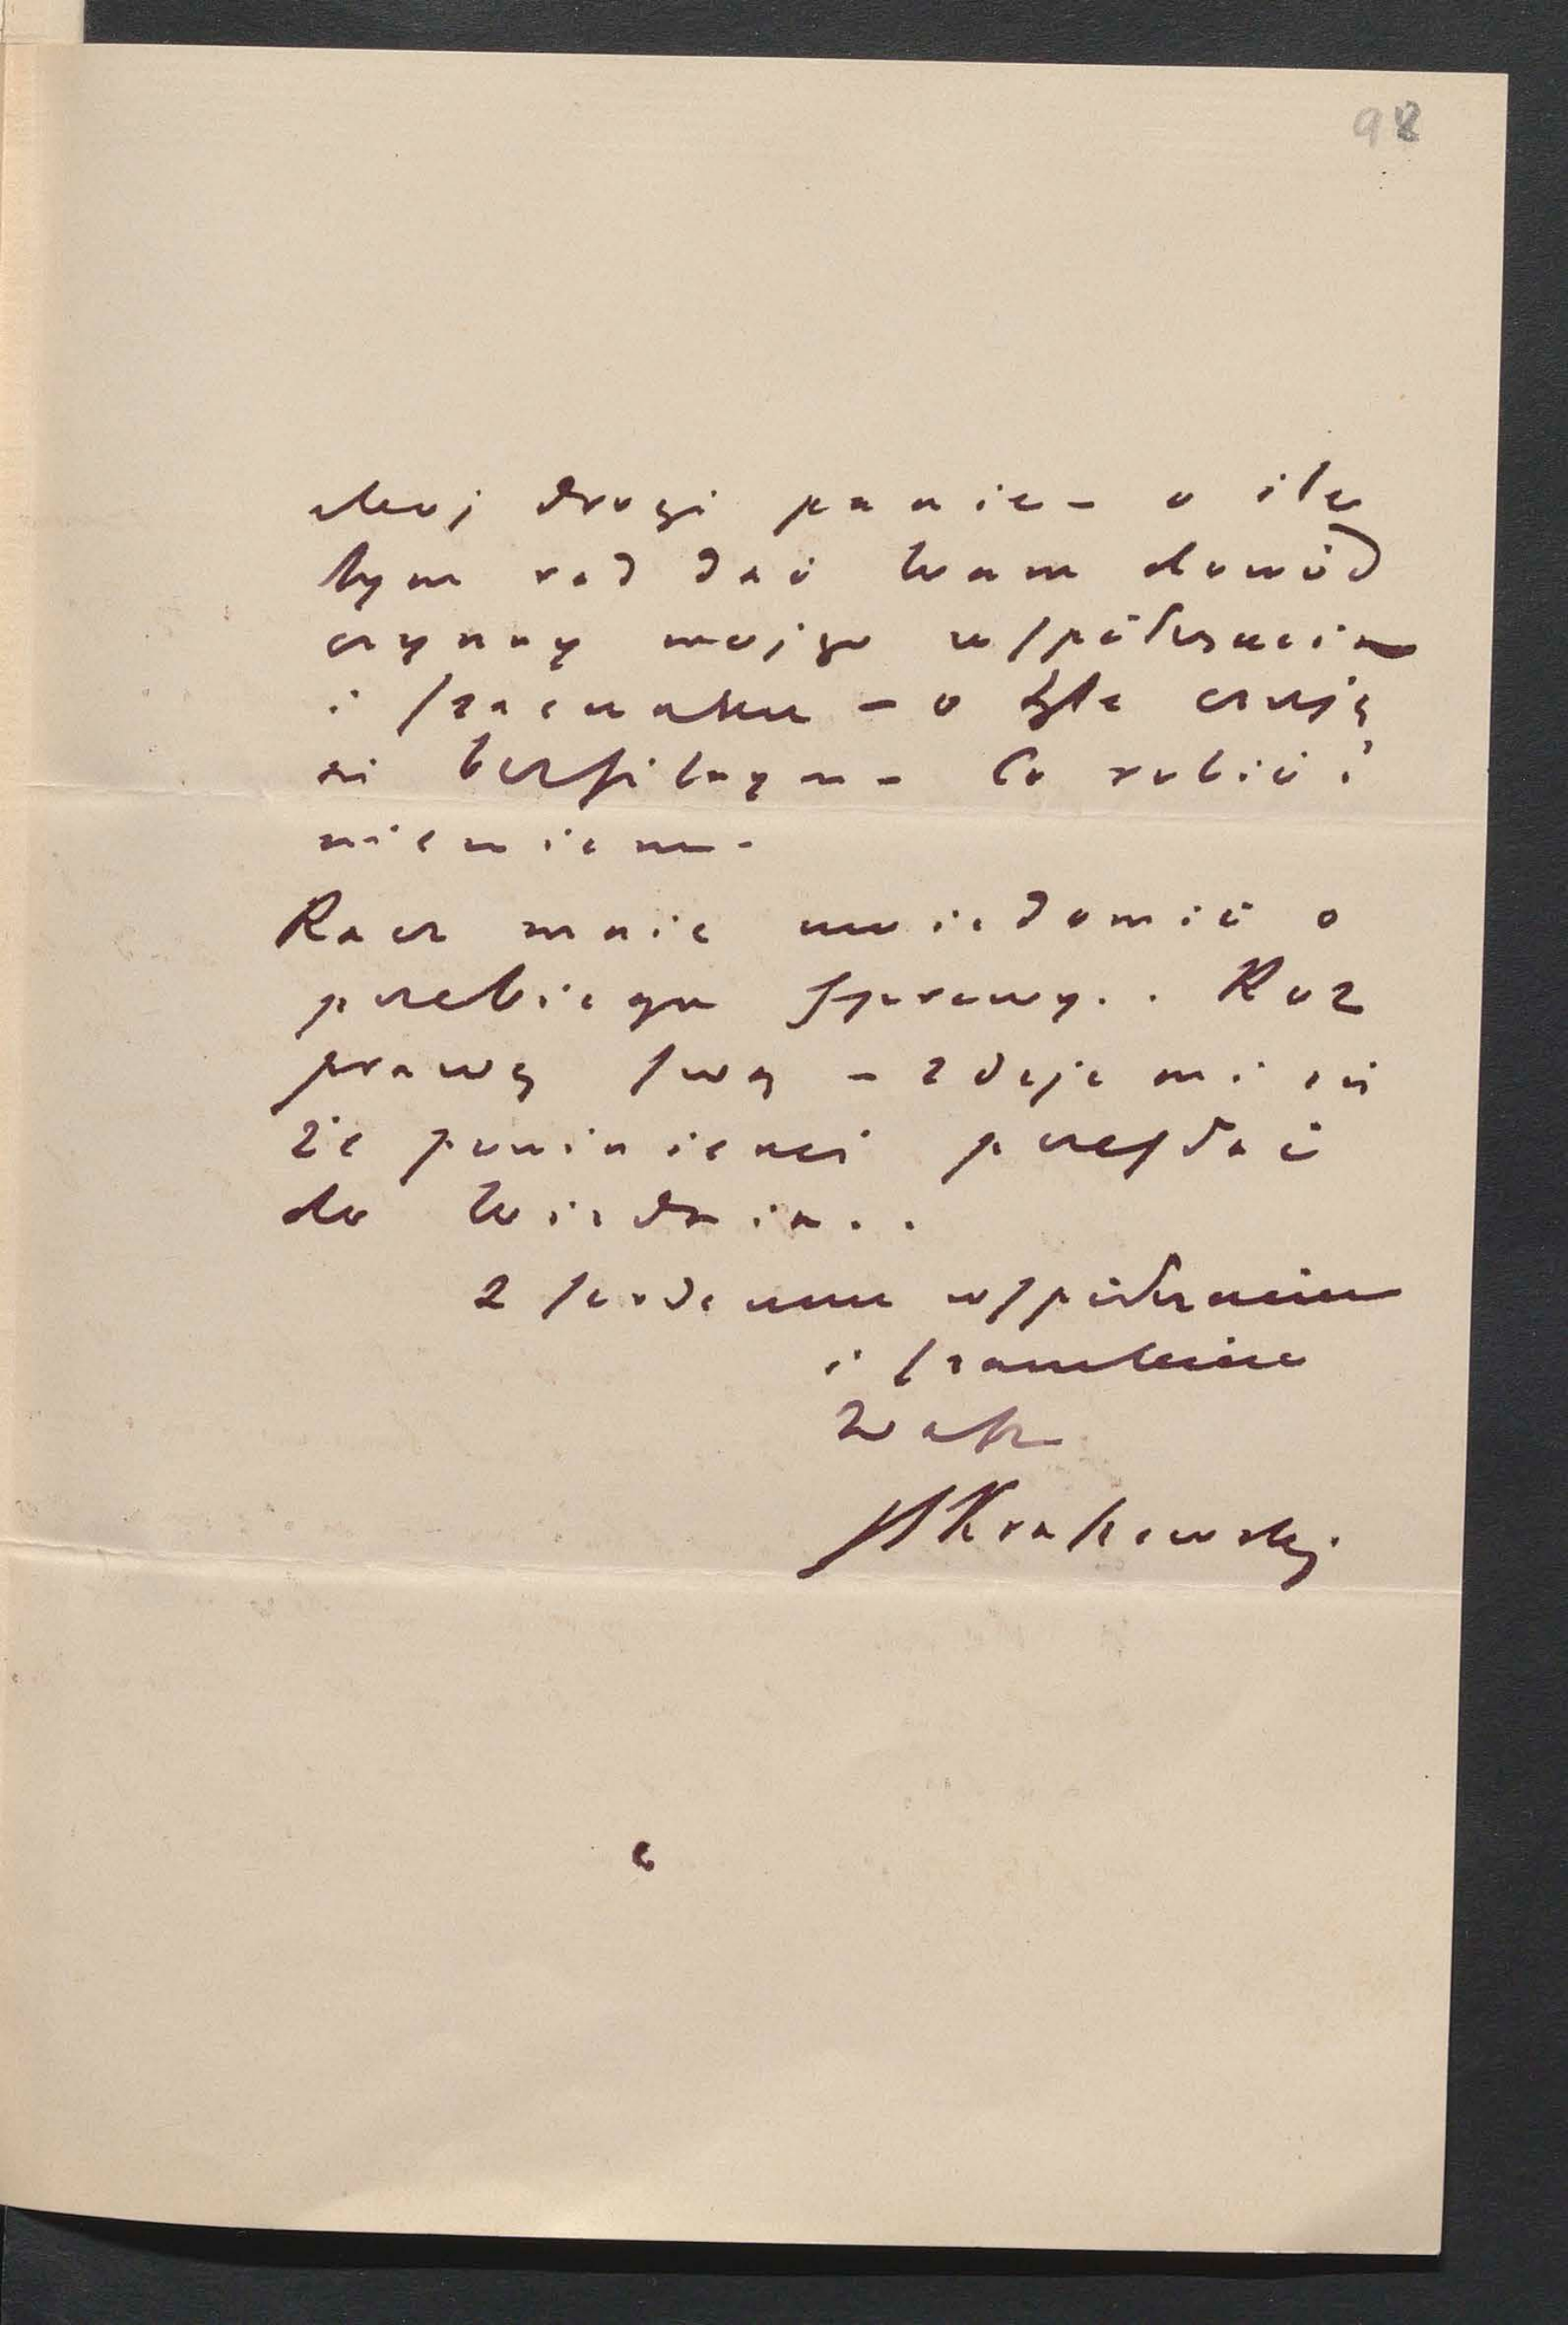 98
Moj drogi panie – o ile
bym rad dać Wam dowód
czynny mojgo wspołczucia
i szacunku – o tyle czuję
się bezsilnym – Co robić?
niewiem.
Racz mnie uwiadomić o
przebiegu sprawy.. Roz
prawę swą – zdaje mi się
że powinieneś przesłać
do Wiednia..
Z serdecznem współczuciem
i szacunkiem
Wasz
Krakowski